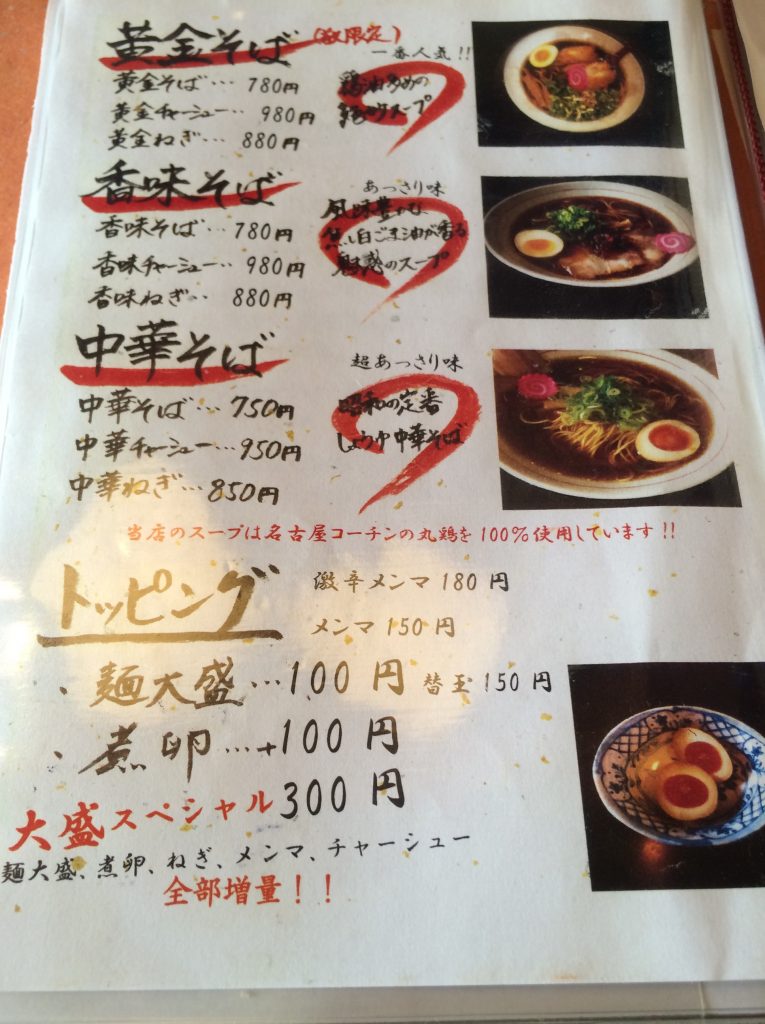 黄金そば (数限定)
一番人気!!
黄金そば… 780円
黄金チャーシュー… 980円
黄金ねぎ… 880円
鶏油多めの
スープ
香味そば
香味そば… 780円
香味チャーシュー… 980円
香味ねぎ… 880円
あっさり味
風味豊かな
焦し白ごま油が香る
魅惑のスープ
中華そば
中華そば… 750円
中華チャーシュー… 950円
中華ねぎ… 850円
超あっさり味
昭和の定番
しょうゆ中華そば
当店のスープは名古屋コーチンの丸鶏を100%使用しています!!
トッピング
激辛メンマ 180円
メンマ 150円
・麺大盛…100円 替玉 150円
・煮卵…+100円
大盛スペシャル 300円
麺大盛、煮卵、ねぎ、メンマ、チャーシュー
全部増量!!